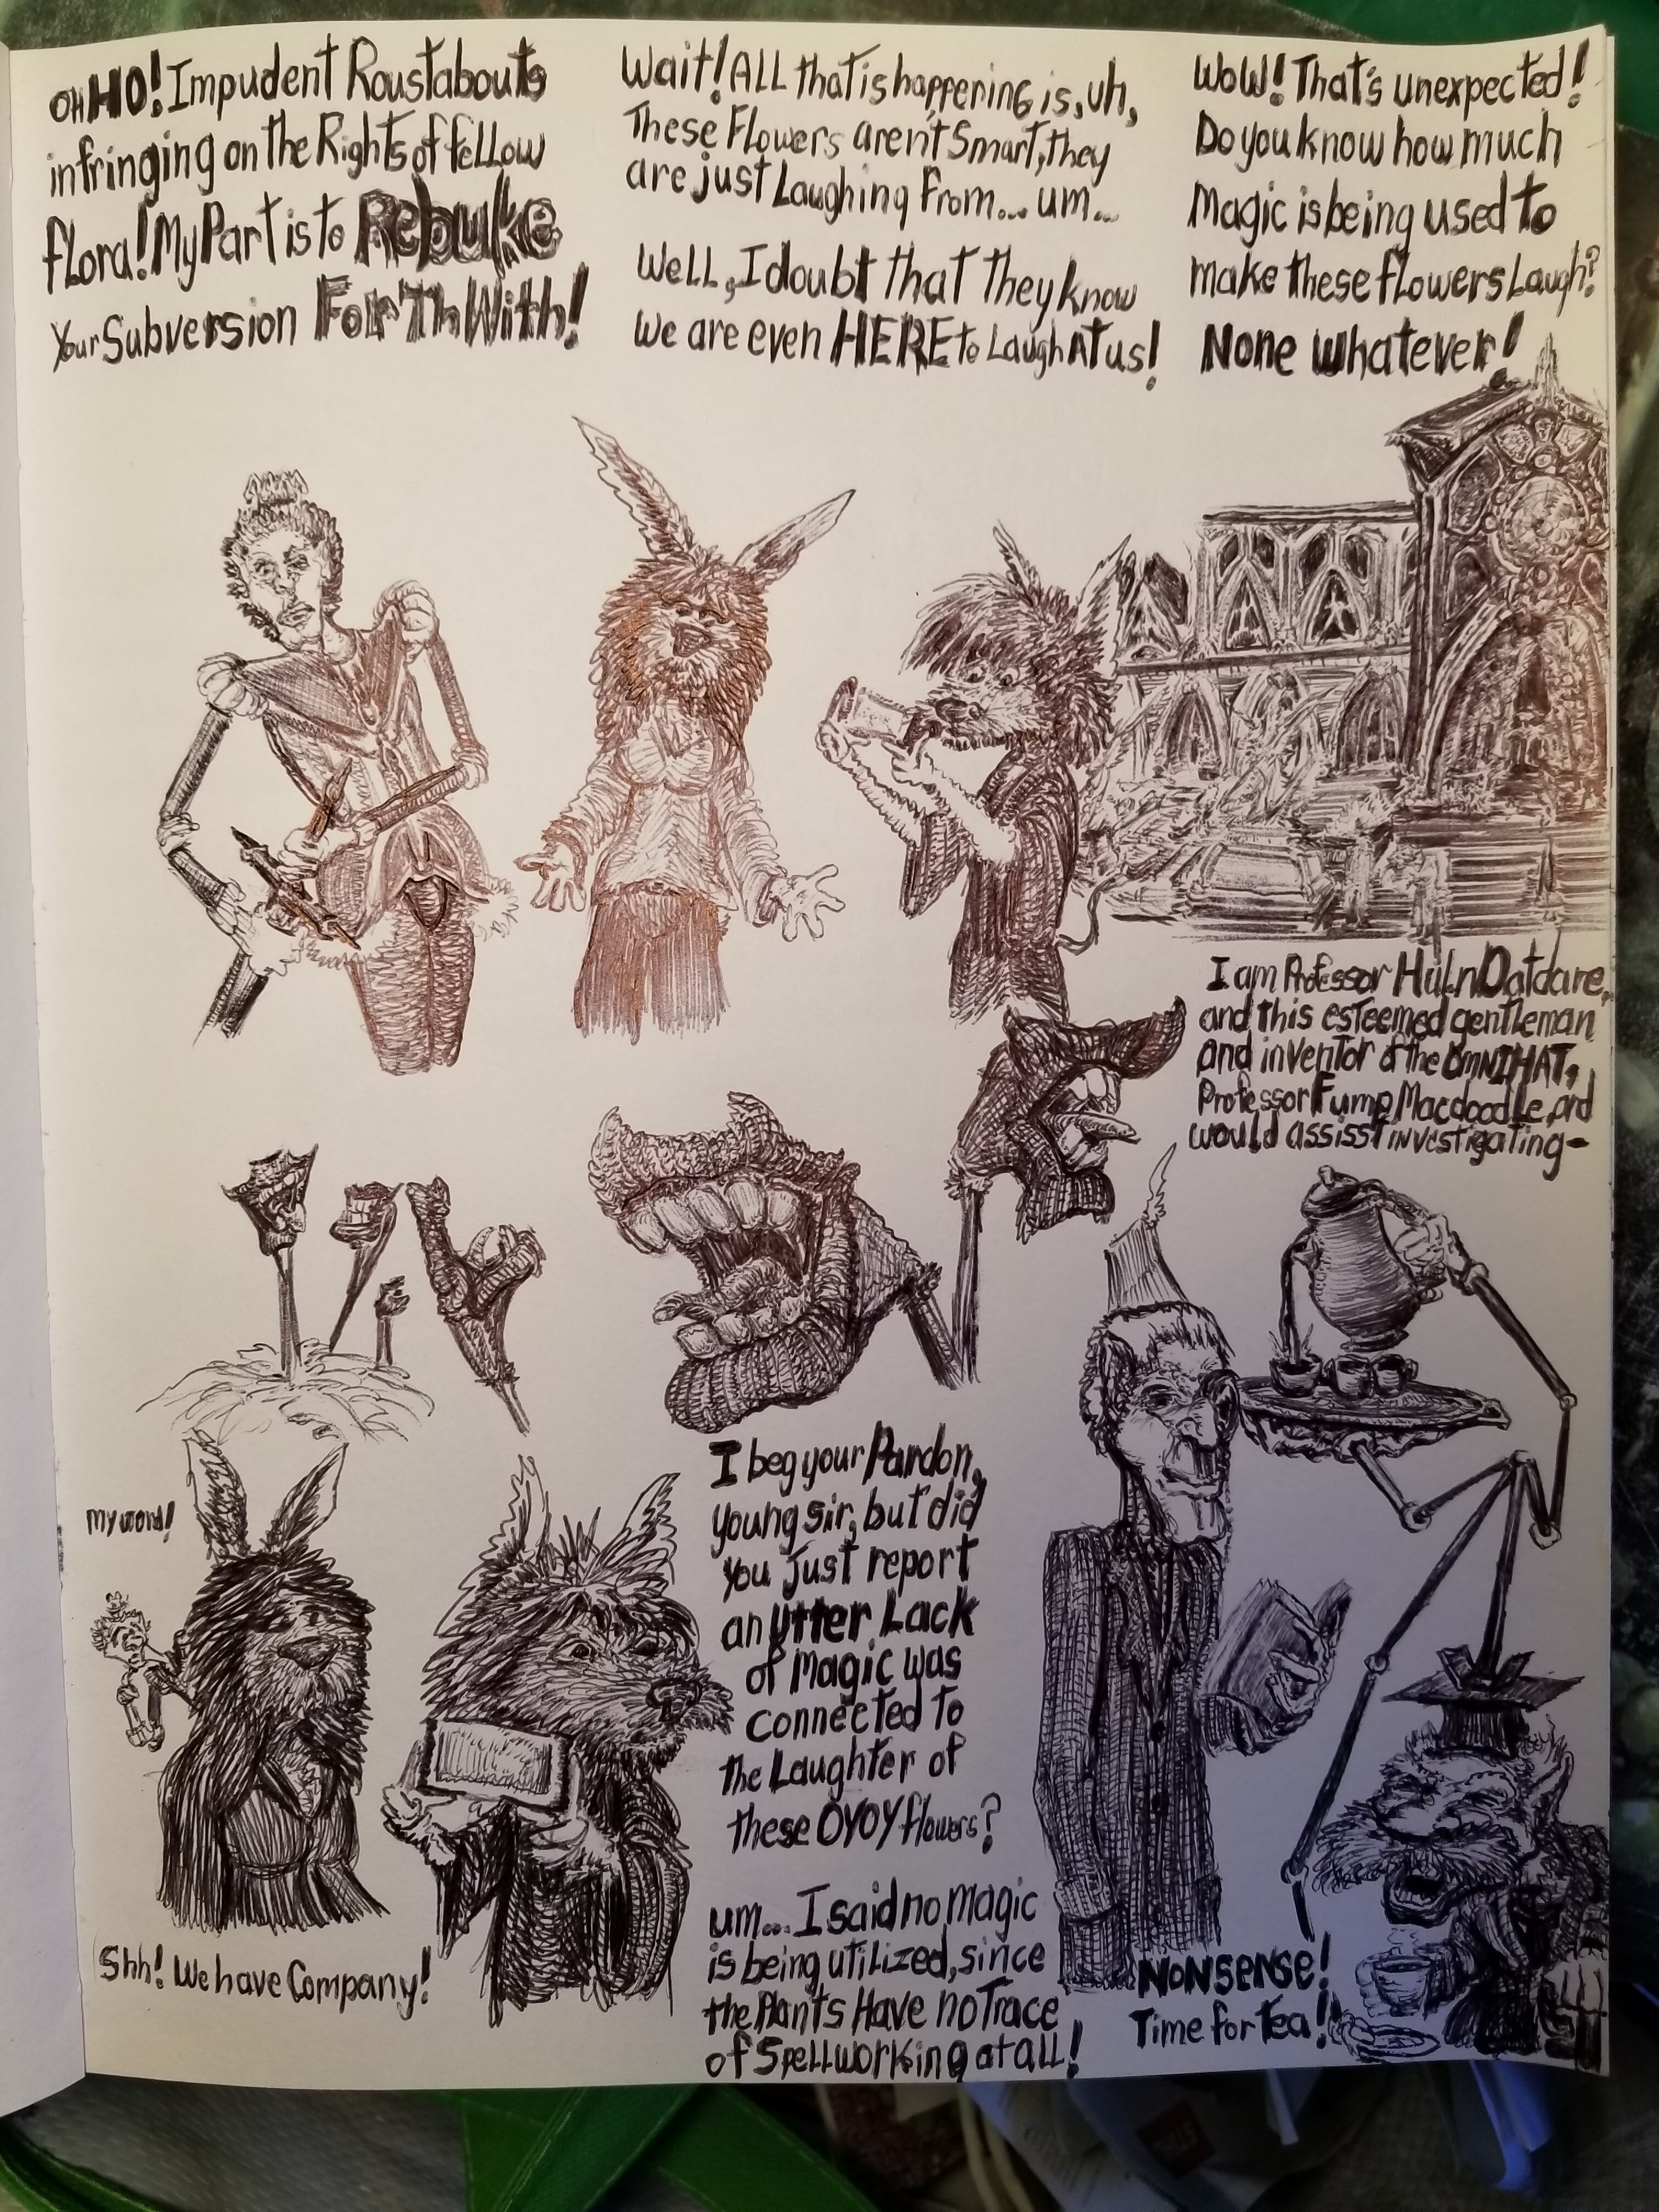 OH HO! Impudent Roustabouts
infringing on the Rights of fellow
flora! My Part is to Rebuke
Your Subversion ForThWith!
Wait! ALL that is happening is, uh,
These Flowers aren't Smart, they
are just Laughing From... um...
Well, I doubt that they know
we are even HERE to Laugh AT us!
WoW! That's unexpected!
Do you know how much
Magic is being used to
make these flowers Laugh?
None whatever!
I am Professor HulnDatdare,
and this esteemed gentleman
and inventor of the OMNIHAT,
Professor Fump Macdoodle, and
would assisst investigating-
My word!
Shh! We have Company!
I beg your Pardon,
young sir, but did
you just report
an Utter Lack
of Magic was
connected to
the Laughter of
these OYOY flowers?
um... I said no magic
is being utilized, since
the Plants Have no Trace
of Spellworking at all!
NoNSeNSe!
Time for Tea!